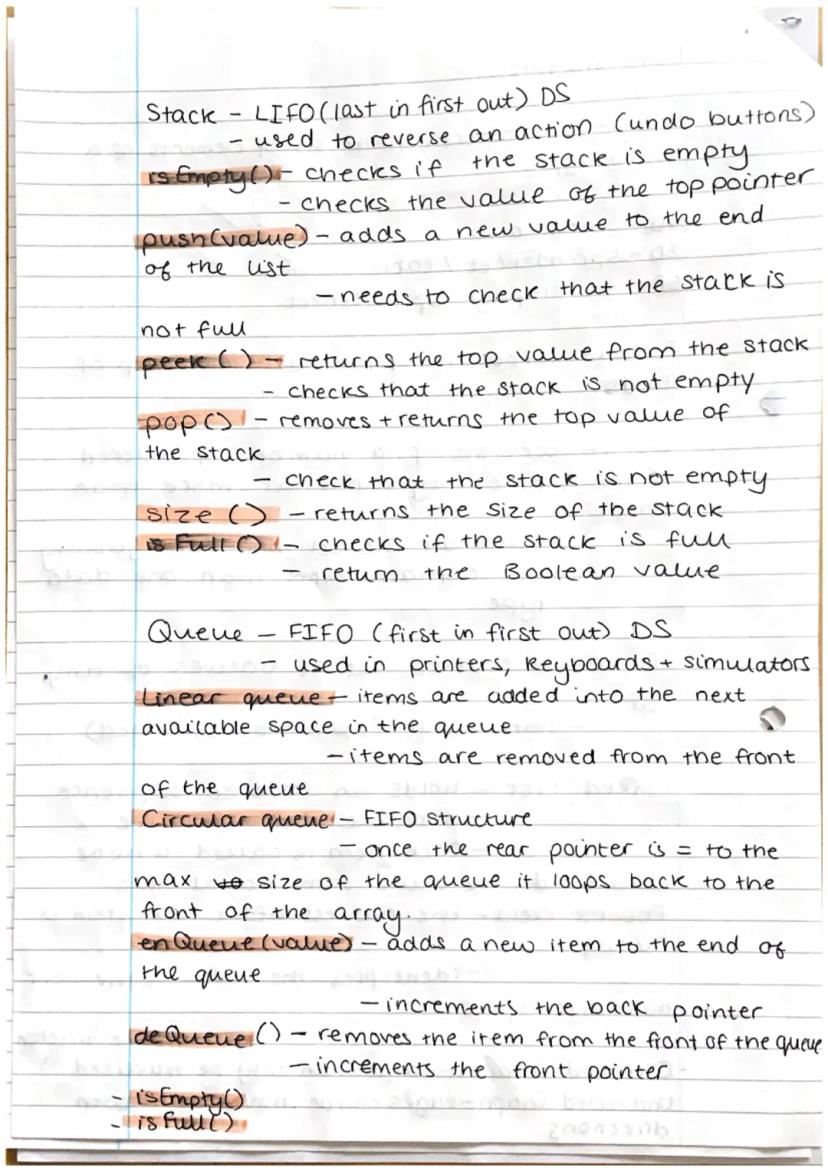 Stack - LIFO (last in first out) DS
- used to reverse an action (undo buttons)
isEmpty() - checks if the stack is empty
- checks the value of the top pointer
push(value) - adds a new value to the end
of the list
- needs to check that the stack is
not full
peek() - returns the top value from the stack
- checks that the stack is not empty
pop() - removes + returns the top value of
the stack
- check that the stack is not empty
size () - returns the size of the stack
isFull() - checks if the stack is full
- return the Boolean value
Queue - FIFO (first in first out) DS
- used in printers, keyboards + simulators
Linear queue - items are added into the next
available space in the queue
- items are removed from the front
of the queue
Circular queue - FIFO structure
- once the rear pointer is = to the
max size of the queue it loops back to the
front of the array.
enQueue(value) - adds a new item to the end of
the queue
- increments the back pointer
deQueue() - removes the item from the front of the queue
- increments the front pointer
- isEmpty()
- isFull()